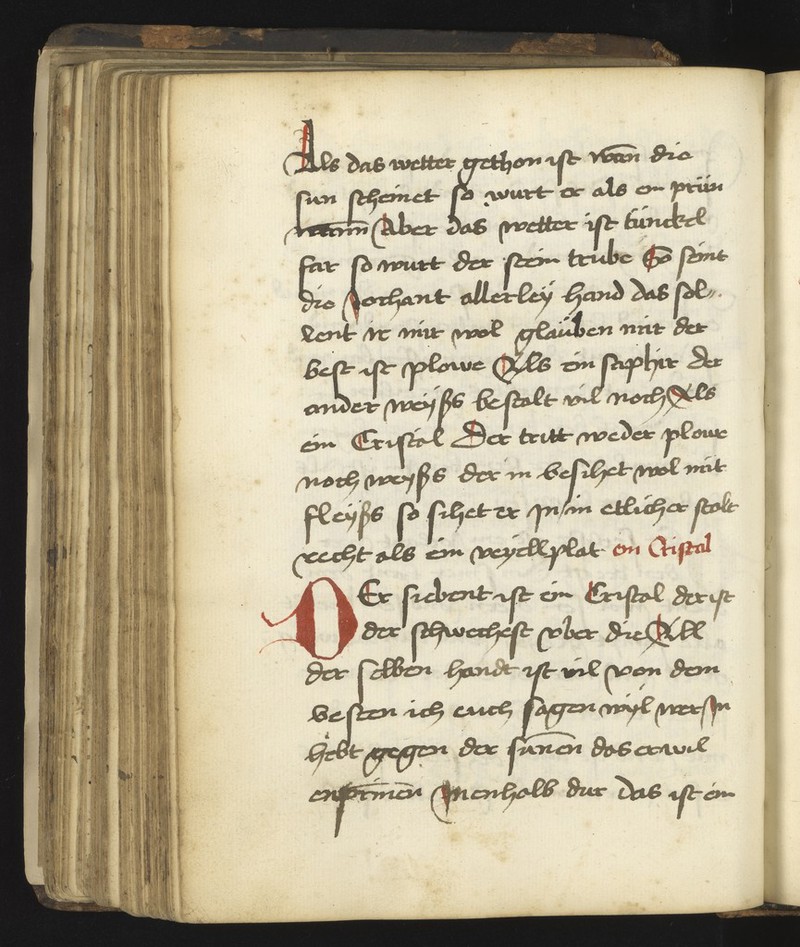 Als das wetter gethon ist wān die
sun scheinet so wurt er als ein prün
Aber das wetter ist tünckel
far so wurt der stein trübe So seint
die vorhant allerley hand das sol„
lent ir mir wol glauben mit der
best ist plowe Als ein saphir der
ander weyßs bestalt vil noch Als
ein Cristal Der tritt weder plowe
noch weyßs der in besihet wol mit
fleyßs so sihet er in in etlicher stalt
recht als ein veyellplat ein Cristal
DEr siebent ist ein Cristal der ist
der schwechest vber die All
der selben handt ist vil von dem
besten ich euch sagen wyl wer in
hebt gegen der sunēn das er wil
enprinēn Inenhalb dar das ist ein